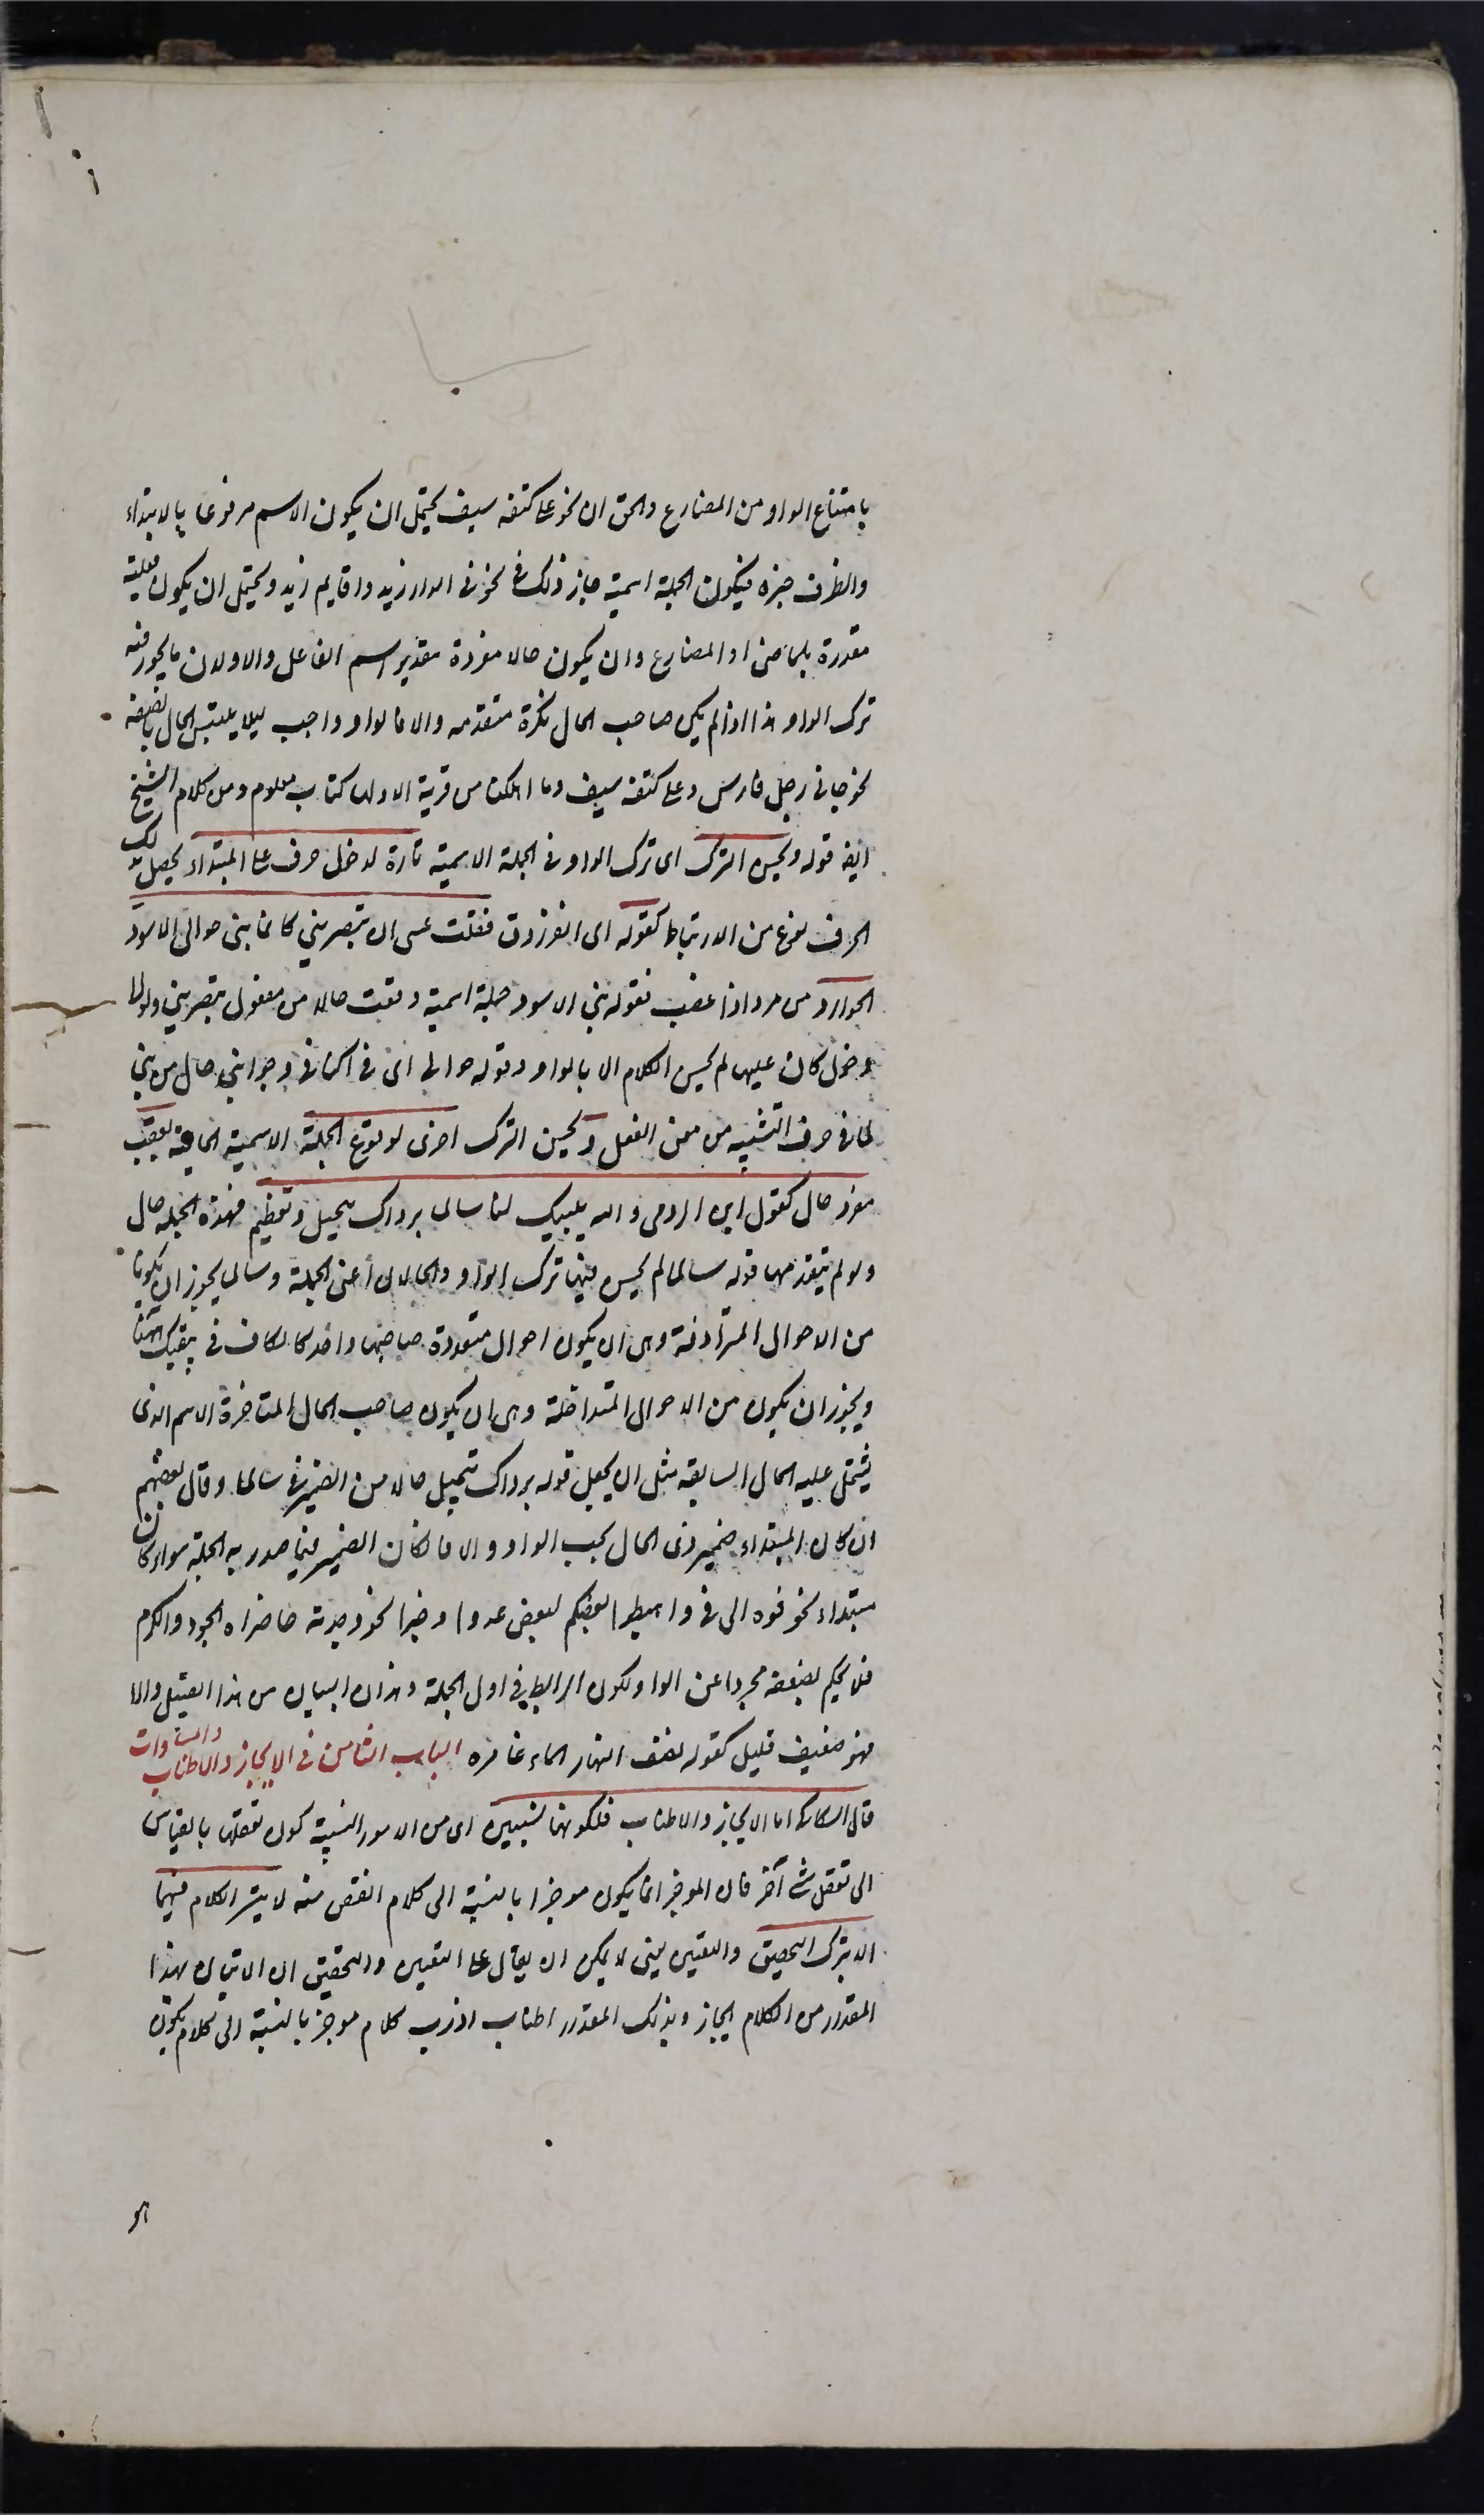 بامتناع الواو من المضارع والحق ان نحو على كتفه سيف يحتمل ان يكون الاسم مرفوعا بالابتداء
والظرف خبره فيكون الجملة اسمية جاز ذلك في نحو في الدار زيد واقايم زيد ويحتمل ان يكون فعلية
مقدرة بالماضي او المضارع وان يكون حالا مفردة بتقدير اسم الفاعل والاولان مما يجوز فيه
ترك الواو هذا اذا لم يكن صاحب الحال نكرة متقدمه والا فالواو واجب ليلا يلتبس الحال بالصفة
نحو جاني رجل فارس وعلى كتفه سيف وما اهلكنا من قرية الا ولها كتاب معلوم ومن كلام الشيخ
ايض قوله ويحسن الترك اى ترك الواو في الجملة الاسمية تارة لدخول حرف على المبتداء يحصل بذلك
الحرف نوع من الارتباط كقوله اى الفرزدق فقلت عسى ان تبصريني كانما بني حوالي الاسود
الحوارد من حرد اذا غضب فقوله بني الاسود جملة اسمية وقعت حالا من مفعول تبصريني ولولا
دخول كان عليها لم يحسن الكلام الا بالواو وقوله حوالي اى في اكنافي وجوانبي حال من بني
لما في حرف التشبيه من معنى الفعل ويحسن الترك اخرى لوقوع الجملة الاسمية الحالية بعقب
مفرد حال كقول ابن الرومي والله يبقيك لنا سالما برداك تبجيل وتعظيم فهذه الجملة حال
ولو لم يتقدمها قوله سالما لم يحسن فيها ترك الواو والحالان اعنى الجملة وسالما يجوز ان يكونا
من الاحوال المترادفة وهى ان يكون احوال متعددة صاحبها واحد كالكاف في يبقيك ههنا
ويجوز ان يكون من الاحوال المتداخلة وهى ان يكون صاحب الحال المتاخرة الاسم الذى
يشتمل عليه الحال السابقه مثل ان يجعل قوله برداك تبجيل حالا من الضمير في سالما وقال بعضهم
ان كان المبتداء ضمير ذى الحال يجب الواو والا فان كان الضمير فيما صدر به الجملة سواء كان
مبتداء نحو فوه الى في واهبطوا بعضكم لبعض عدو او خبرا نحو وجدته حاضراه الجود والكرم
فلا يحكم بضعفه مجردا عن الواو لكون الرابط في اول الجملة وهذان البيتان من هذا القبيل والا
فهو ضعيف قليل كقوله نصف النهار الماء غامره الباب الثامن في الايجاز والاطناب والمساوات
قال السكاكى اما الايجاز والاطناب فلكونهما نسبيين اى من الامور النسبية كون تعقلها بالقياس
الى تعقل شئ آخر فان الموجز انما يكون موجزا بالنسبة الى كلام انقص منه لا يتيسر الكلام فيهما
الا بترك التحقيق والتعيين يعنى لا يمكن ان يقال على التعيين والتحقيق ان الاتيان بهذا
المقدار من الكلام ايجاز وبذلك المقدار اطناب اذ رب كلام موجز بالنسبة الى كلام يكون